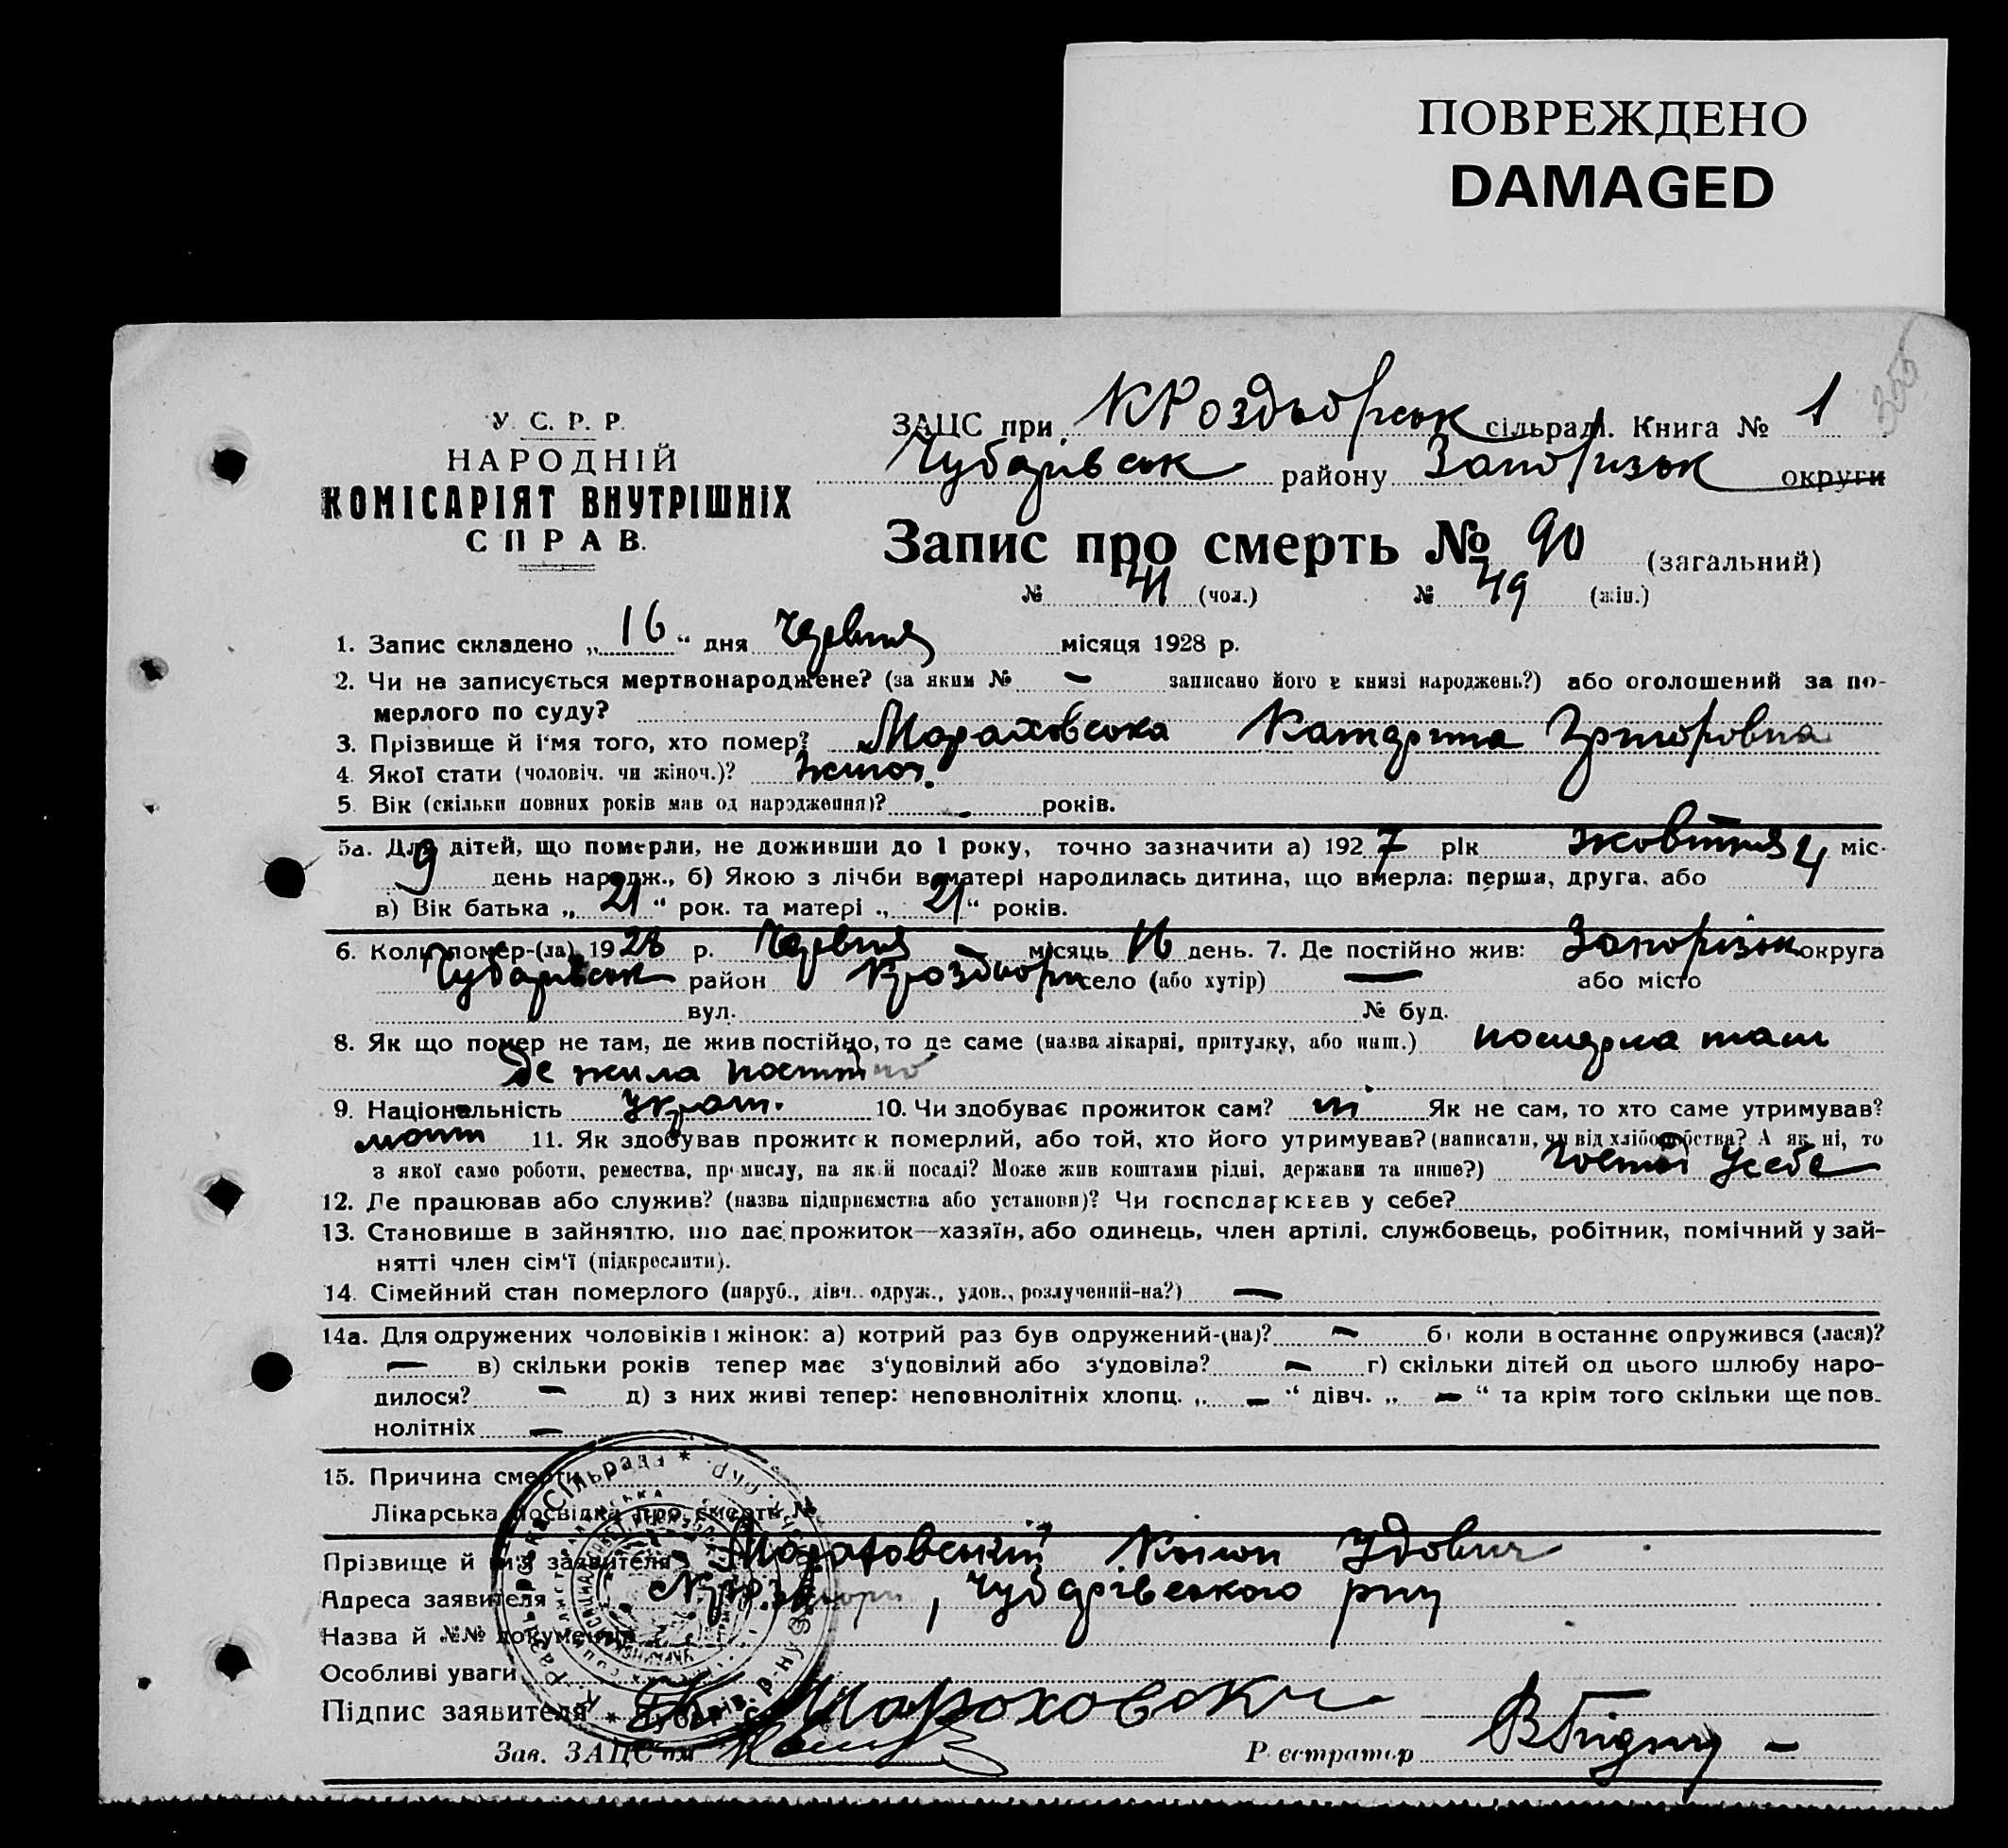 ПОВРЕЖДЕНО
DAMAGED
У. С. Р. Р.
НАРОДНІЙ
КОМІСАРІЯТ ВНУТРІШНІХ
СПРАВ.
ЗАЦС при КРоздорськ сільраді. Книга № 1
Чубарівськ району Запорізьк округи
Запис про смерть № 90 (загальний)
№ 41 (чол.) № 49 (жін.)
1. Запис складено „ 16 “ дня Червня місяця 1928 р.
2. Чи не записується мертвонароджене? (за яким № – записано його в книзі народжень?) або оголошений за по-
мерлого по суду?
3. Прізвище й і'мя того, хто помер? Мараховська Катерина Григоровна
4. Якої стати (чоловіч. чи жіноч.)? жіноч.
5. Вік (скільки повних років мав од народження)? – років.
5а. Для дітей, що померли, не доживши до 1 року, точно зазначити а) 1927 рік жовтня міс.
9 день народж., б) Якою з лічби в матері народилась дитина, що вмерла: перша, друга, або 4
в) Вік батька „ 21 “ рок. та матері „ 21 “ років.
6. Коли помер-(ла) 1928 р. Червня місяць 16 день. 7. Де постійно жив: Запорізьк округа
Чубарівськ район Кроздори село (або хутір) — або місто
вул. № буд.
8. Як що помер не там, де жив постійно, то де саме (назва лікарні, притулку, або инш.) померла там
де жила постійно
9. Національність Украт. 10. Чи здобуває прожиток сам? ні Як не сам, то хто саме утримував?
11. Як здобував прожиток померлий, або той, хто його утримував? (написати, чи від хліборобства? А як ні, то
з якої само роботи, ремества, промислу, на якій посаді? Може жив коштами рідні, держави та инше?) Усебе
12. Де працював або служив? (назва підприємства або установи)? Чи господарював у себе?
13. Становище в зайняттю, що дає прожиток—хазяїн, або одинець, член артілі, службовець, робітник, помічний у зай-
нятті член сім'ї (підкреслити).
14. Сімейний стан померлого (паруб., дівч. одруж., удов., розлучений-на?) —
14а. Для одружених чоловіків і жінок: а) котрий раз був одружений-(на)? – б) коли в останнє одружився (лася)?
— в) скільки років тепер має з'удовілий або з'удовіла? – г) скільки дітей од цього шлюбу наро-
дилося? – д) з них живі тепер: неповнолітніх хлопц. „ – “ дівч. „ – “ та крім того скільки ще пов-
нолітніх —
15. Причина смерти
Лікарська посвідка про смерть №
Прізвище й і'мя заявителя Мараховський
Адреса заявителя , Чубарівського рну
Назва й №№ документів
Особливі уваги
Підпис заявителя Мороховски
Зав. ЗАЦС'ом Реєстратор